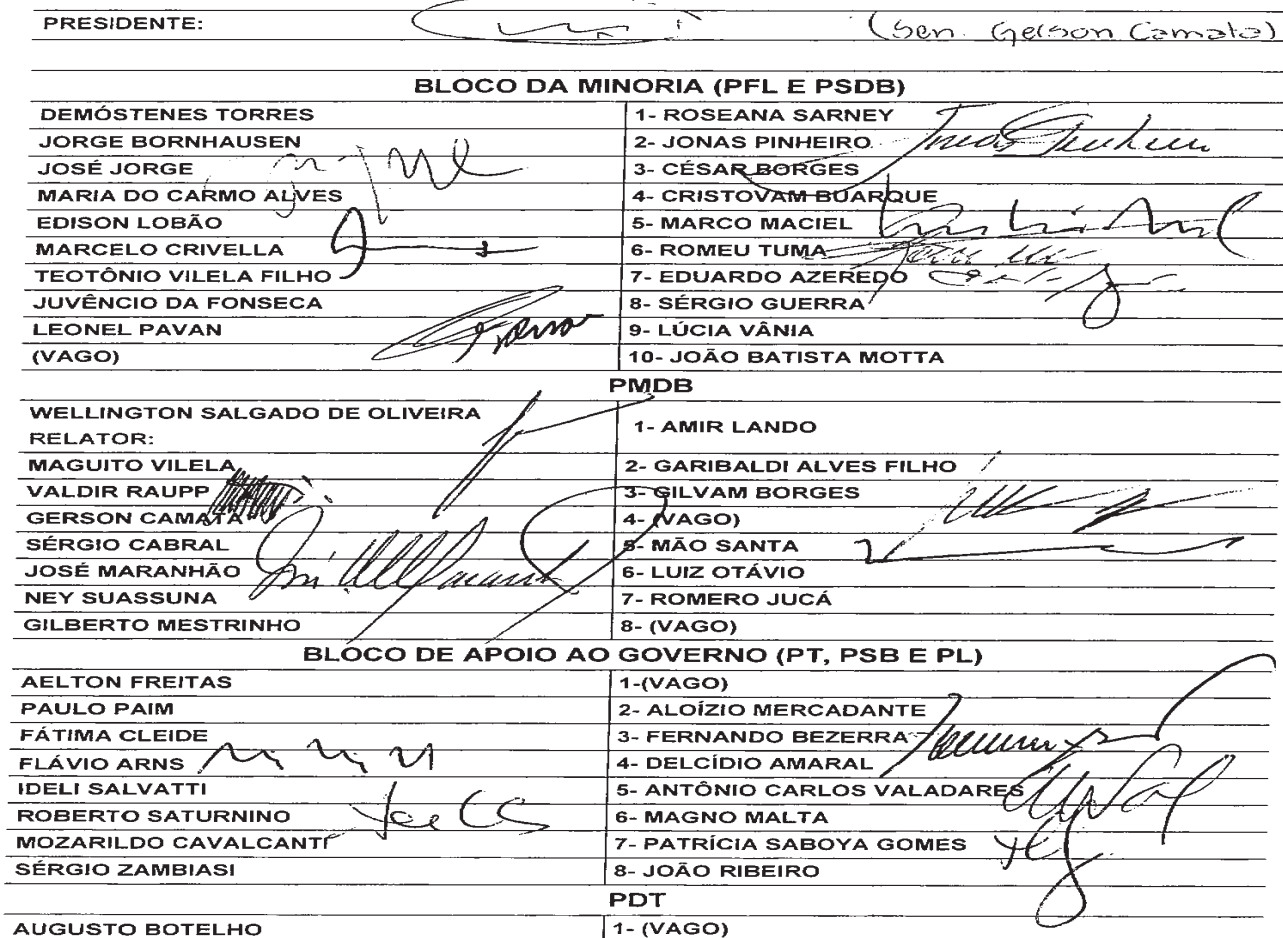 PRESIDENTE: (Sen. Gerson Camata)
BLOCO DA MINORIA (PFL E PSDB)
DEMÓSTENES TORRES 1- ROSEANA SARNEY
JORGE BORNHAUSEN 2- JONAS PINHEIRO
JOSÉ JORGE 3- CÉSAR BORGES
MARIA DO CARMO ALVES 4- CRISTOVAM BUARQUE
EDISON LOBÃO 5- MARCO MACIEL
MARCELO CRIVELLA 6- ROMEU TUMA
TEOTÔNIO VILELA FILHO 7- EDUARDO AZEREDO
JUVÊNCIO DA FONSECA 8- SÉRGIO GUERRA
LEONEL PAVAN 9- LÚCIA VÂNIA
(VAGO) 10- JOÃO BATISTA MOTTA
PMDB
WELLINGTON SALGADO DE OLIVEIRA
RELATOR: 1- AMIR LANDO
MAGUITO VILELA 2- GARIBALDI ALVES FILHO
VALDIR RAUPP 3- GILVAM BORGES
GERSON CAMATA 4- (VAGO)
SÉRGIO CABRAL 5- MÃO SANTA
JOSÉ MARANHÃO 6- LUIZ OTÁVIO
NEY SUASSUNA 7- ROMERO JUCÁ
GILBERTO MESTRINHO 8- (VAGO)
BLOCO DE APOIO AO GOVERNO (PT, PSB E PL)
AELTON FREITAS 1-(VAGO)
PAULO PAIM 2- ALOÍZIO MERCADANTE
FÁTIMA CLEIDE 3- FERNANDO BEZERRA
FLÁVIO ARNS 4- DELCÍDIO AMARAL
IDELI SALVATTI 5- ANTÔNIO CARLOS VALADARES
ROBERTO SATURNINO 6- MAGNO MALTA
MOZARILDO CAVALCANTI 7- PATRÍCIA SABOYA GOMES
SÉRGIO ZAMBIASI 8- JOÃO RIBEIRO
PDT
AUGUSTO BOTELHO 1- (VAGO)